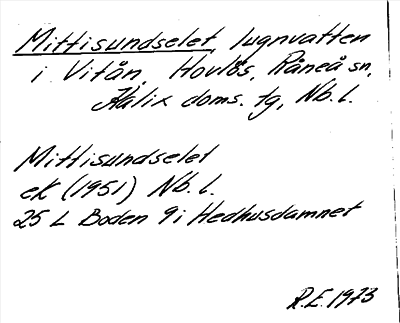 Mittisundselet, lugnvatten
i Vitån, Hovlös, Råneå sn,
Kalix doms. tg, Nb. l.
Mittisundselet
ek (1951) Nb. l.
25 L Boden 9i Hedhusdamnet
R.E. 1973